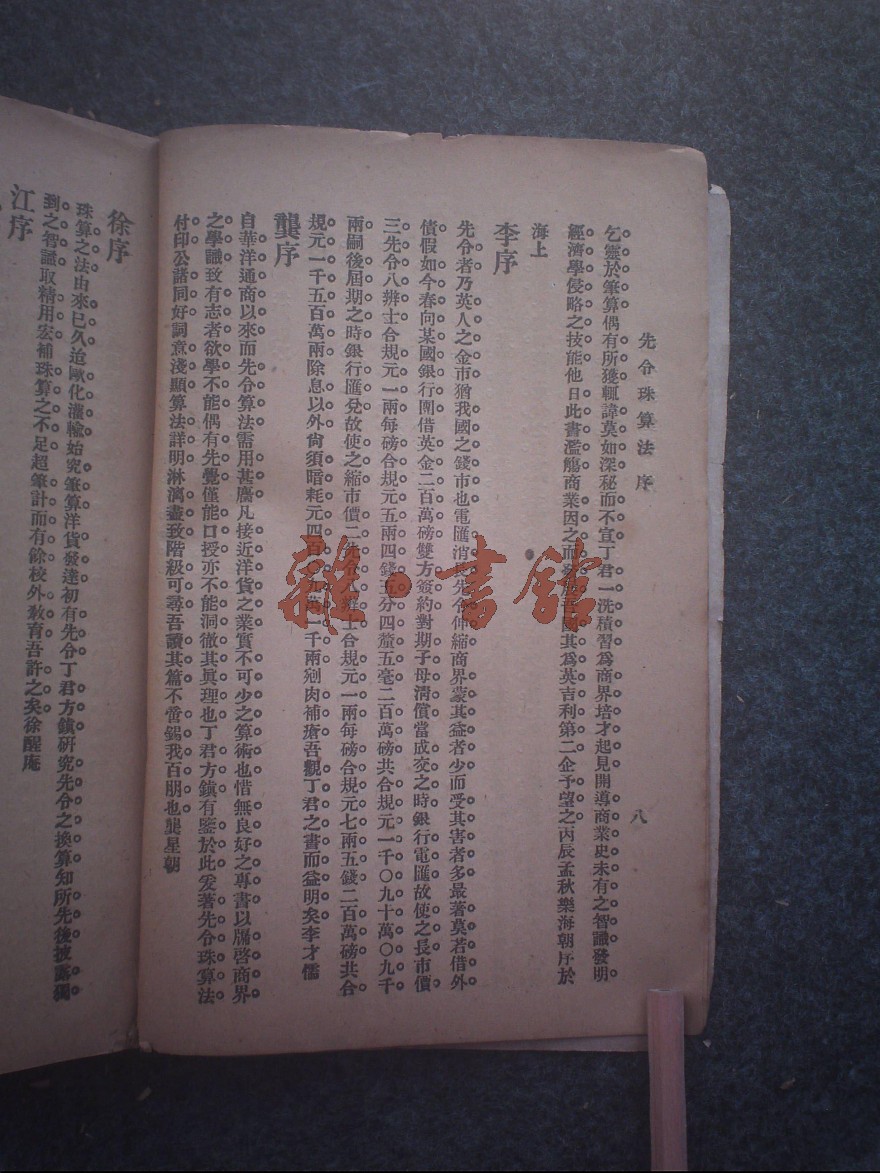 先令珠算法序
八
乞靈於筆算偶有所獲輒諱莫如深秘而不宣丁君一洗積習爲商界培才起見開導商業史未有之智識發明
經濟學侵略之技能他日此書濫觴商業因之而發展吾國其爲英吉利第二企予望之丙辰孟秋樂海朝序於
海上
李序
先令者乃英人之金市猶我國之錢市也電匯消長先令伸縮商界蒙其益者少而受其害者多最著莫若借外
債假如今春向某國銀行團借英金二百萬磅雙方簽約對期子母清償當成交之時銀行電匯故使之長市價
三先令八辨士合規元一兩每磅合規元五兩四錢五分四釐五毫二百萬磅共合規元一千〇九十萬〇九千
兩嗣後屆期之時銀行匯兌故使之縮市價二先令八辨士合規元一兩每磅合規元七兩五錢二百萬磅共合
規元一千五百萬兩除息以外尙須暗耗元四百〇九萬一千兩剜肉補瘡吾觀丁君之書而益明矣李才儒
龔序
自華洋通商以來而先令算法需用甚廣凡接近洋貨之業質不可少之算術也惜無良好之專書以牖啓商界
之學識致有志者欲學不能偶有先覺僅能口授亦不能洞徹其眞理也丁君方鎮有鑒於此爰著先令珠算法
付印公諸同好詞意淺顯算法詳明淋漓盡致階級可尋吾讀其篇不啻錫我百朋也龔星朝
徐序
珠算之法由來已久迨歐化灌輸始究筆算洋貨發達初有先令丁君方鎮硏究先令之換算知所先後披露獨
到之智識取精用宏補珠算之不足超筆計而有餘校外敎育吾許之矣徐醒庵
江序
雜·書館